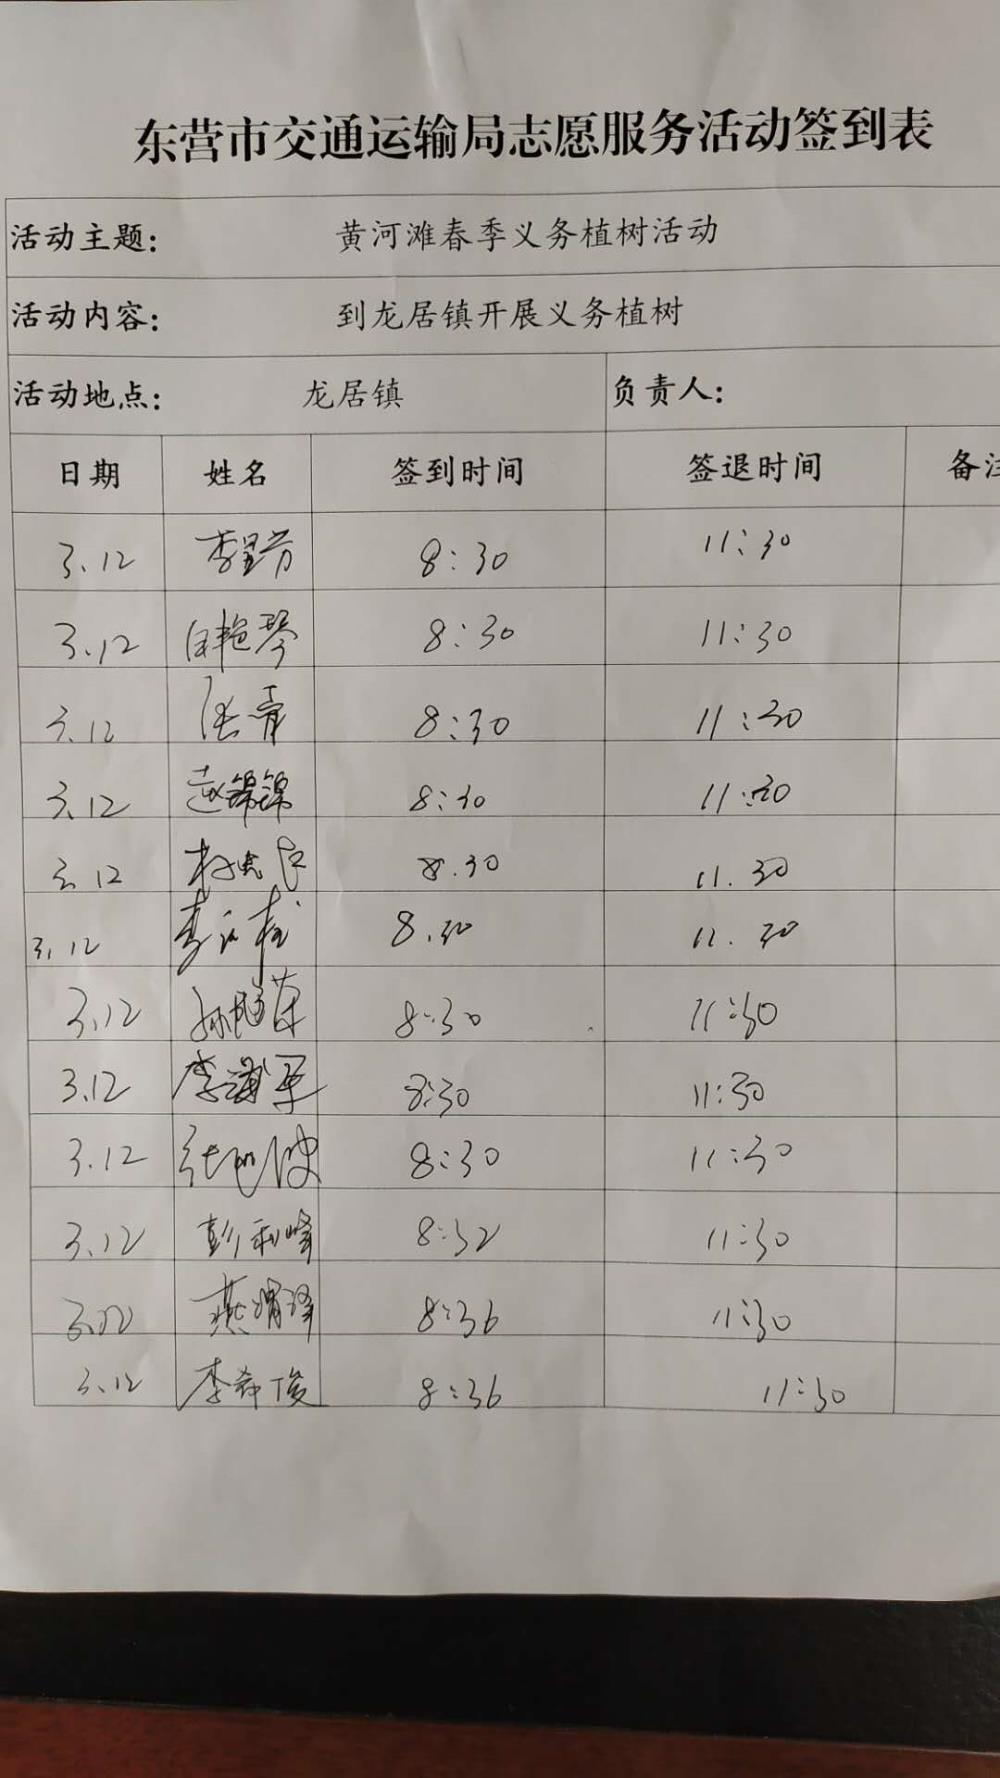 东营市交通运输局志愿服务活动签到表
活动主题: 黄河滩春季义务植树活动
活动内容: 到龙居镇开展义务植树
活动地点: 龙居镇 负责人:
日期 姓名 签到时间 签退时间 备注
3.12 8:30 11:30
3.12 8:30 11:30
3.12 张青 8:30 11:30
3.12 赵锦锦 8:30 11:30
3.12 8.30 11.30
3.12 8.30 11.30
3.12 8:30 11:30
3.12 李海军 8:30 11:30
3.12 8:30 11:30
3.12 彭利峰 8:32 11:30
3.12 8:36 11:30
3.12 8:36 11:30